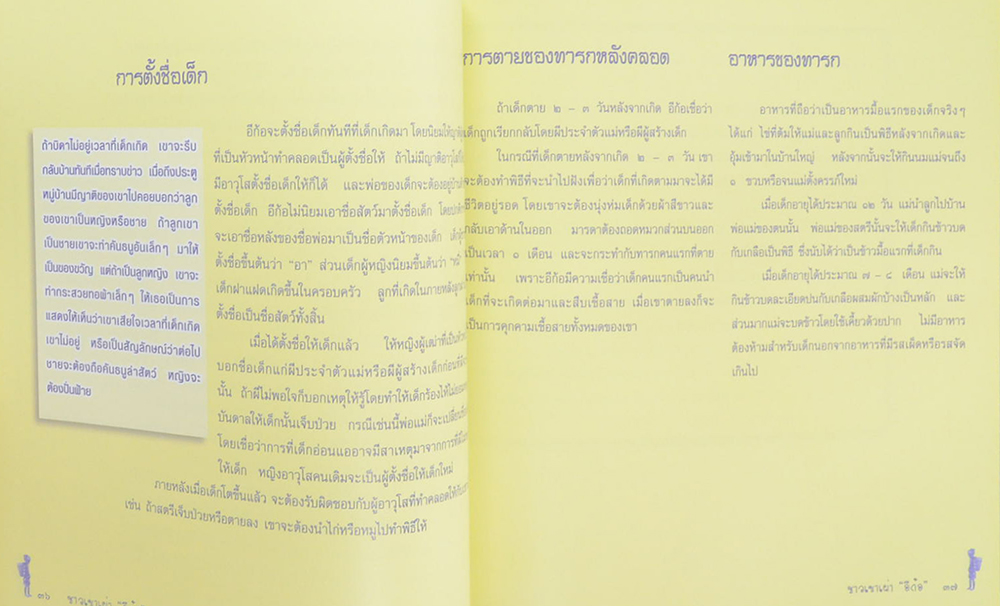 การตั้งชื่อเด็ก
ถ้าบิดาไม่อยู่เวลาที่เด็กเกิด เขาจะรีบ
กลับบ้านทันทีเมื่อทราบข่าว เมื่อถึงประตู
หมู่บ้านมีญาติของเขาไปคอยบอกว่าลูก
ของเขาเป็นหญิงหรือชาย ถ้าลูกเขา
เป็นชายเขาจะทำคันธนูอันเล็กๆ มาให้
เป็นของขวัญ แต่ถ้าเป็นลูกหญิง เขาจะ
ทำกระสวยทอผ้าเล็กๆ ให้เธอเป็นการ
แสดงให้เห็นว่าเขาเสียใจเวลาที่เด็กเกิด
เขาไม่อยู่ หรือเป็นสัญลักษณ์ว่าต่อไป
ชายจะต้องถือคันธนูล่าสัตว์ หญิงจะ
ต้องปั่นฝ้าย
อีก้อจะตั้งชื่อเด็กทันทีที่เด็กเกิดมา โดยนิยมให้
ที่เป็นหัวหน้าทำคลอดเป็นผู้ตั้งชื่อให้ ถ้าไม่มีญาติอาวุโส
มีอาวุโสตั้งชื่อเด็กให้ก็ได้ และพ่อของเด็กจะต้องอยู่
ตั้งชื่อเด็ก อีก้อไม่นิยมเอาชื่อสัตว์มาตั้งชื่อเด็ก
จะเอาชื่อหลังของชื่อพ่อมาเป็นชื่อตัวหน้าของเด็ก
ตั้งชื่อขึ้นต้นว่า "อา" ส่วนเด็กผู้หญิงนิยมขึ้นต้นว่า
เด็กฝาแฝดเกิดขึ้นในครอบครัว ลูกที่เกิดในภายหลัง
ตั้งชื่อเป็นชื่อสัตว์ทั้งสิ้น
เมื่อได้ตั้งชื่อให้เด็กแล้ว ให้หญิงผู้เฒ่าที่เป็น
บอกชื่อเด็กแก่ผีประจำตัวแม่หรือผีผู้สร้างเด็กก่อน
นั้น ถ้าผีไม่พอใจก็บอกเหตุให้รู้โดยทำให้เด็กร้องไห้
บันดาลให้เด็กนั้นเจ็บป่วย กรณีเช่นนี้พ่อแม่ก็จะเปลี่ยน
โดยเชื่อว่าการที่เด็กอ่อนแออาจมีสาเหตุมาจากการที่
ให้เด็ก หญิงอาวุโสคนเดิมจะเป็นผู้ตั้งชื่อให้เด็กใหม่
ภายหลังเมื่อเด็กโตขึ้นแล้ว จะต้องรับผิดชอบกับผู้อาวุโสที่ทำคลอดให้
เช่น ถ้าสตรีเจ็บป่วยหรือตายลง เขาจะต้องนำไก่หรือหมูไปทำพิธีให้
๓๖ ชาวเขาเผ่า
การตายของทารกหลังคลอด
ถ้าเด็กตาย ๒ - ๓ วันหลังจากเกิด อีก้อเชื่อว่า
เด็กถูกเรียกกลับโดยผีประจำตัวแม่หรือผีผู้สร้างเด็ก
ในกรณีที่เด็กตายหลังจากเกิด ๒ - ๓ วัน เขา
จะต้องทำพิธีที่จะนำไปฝังเพื่อว่าเด็กที่เกิดตามมาจะได้มี
ชีวิตอยู่รอด โดยเขาจะต้องนุ่งห่มเด็กด้วยผ้าสีขาวและ
กลับเอาด้านในออก มารดาต้องถอดหมวกส่วนบนออก
เป็นเวลา ๑ เดือน และจะกระทำกับทารกคนแรกที่ตาย
เท่านั้น เพราะอีก้อมีความเชื่อว่าเด็กคนแรกเป็นคนนำ
เด็กที่จะเกิดต่อมาและสืบเชื้อสาย เมื่อเขาตายลงก็จะ
เป็นการคุกคามเชื้อสายทั้งหมดของเขา
อาหารของทารก
อาหารที่ถือว่าเป็นอาหารมื้อแรกของเด็กจริงๆ
ได้แก่ ไข่ที่ต้มให้แม่และลูกกินเป็นพิธีหลังจากเกิดและ
อุ้มเข้ามาในบ้านใหญ่ หลังจากนั้นจะให้กินนมแม่จนถึง
๑ ขวบหรือจนแม่ตั้งครรภ์ใหม่
เมื่อเด็กอายุได้ประมาณ ๑๒ วัน แม่นำลูกไปบ้าน
พ่อแม่ของตนนั้น พ่อแม่ของสตรีนั้นจะให้เด็กกินข้าวบด
กับเกลือเป็นพิธี ซึ่งนับได้ว่าเป็นข้าวมื้อแรกที่เด็กกิน
เมื่อเด็กอายุได้ประมาณ ๗ - ๘ เดือน แม่จะให้
กินข้าวบดละเอียดปนกับเกลือผสมผักบ้างเป็นหลัก และ
ส่วนมากแม่จะบดข้าวโดยใช้เคี้ยวด้วยปาก ไม่มีอาหาร
ต้องห้ามสำหรับเด็กนอกจากอาหารที่มีรสเผ็ดหรือรสจัด
เกินไป
ชาวเขาเผ่า "อีก้อ" ๓๗